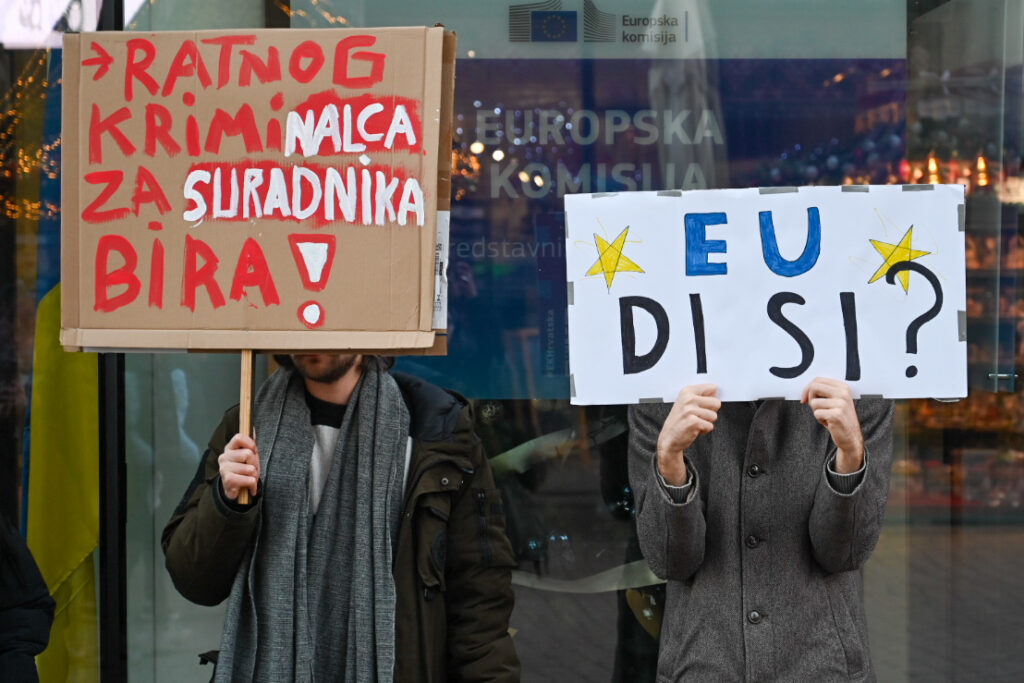 →RATNOG
KRIMINALCA
ZA SURADNIKA
BIRA!
Europska
komisija
EUROPSKA
KOMISIJA
EU
DI SI?